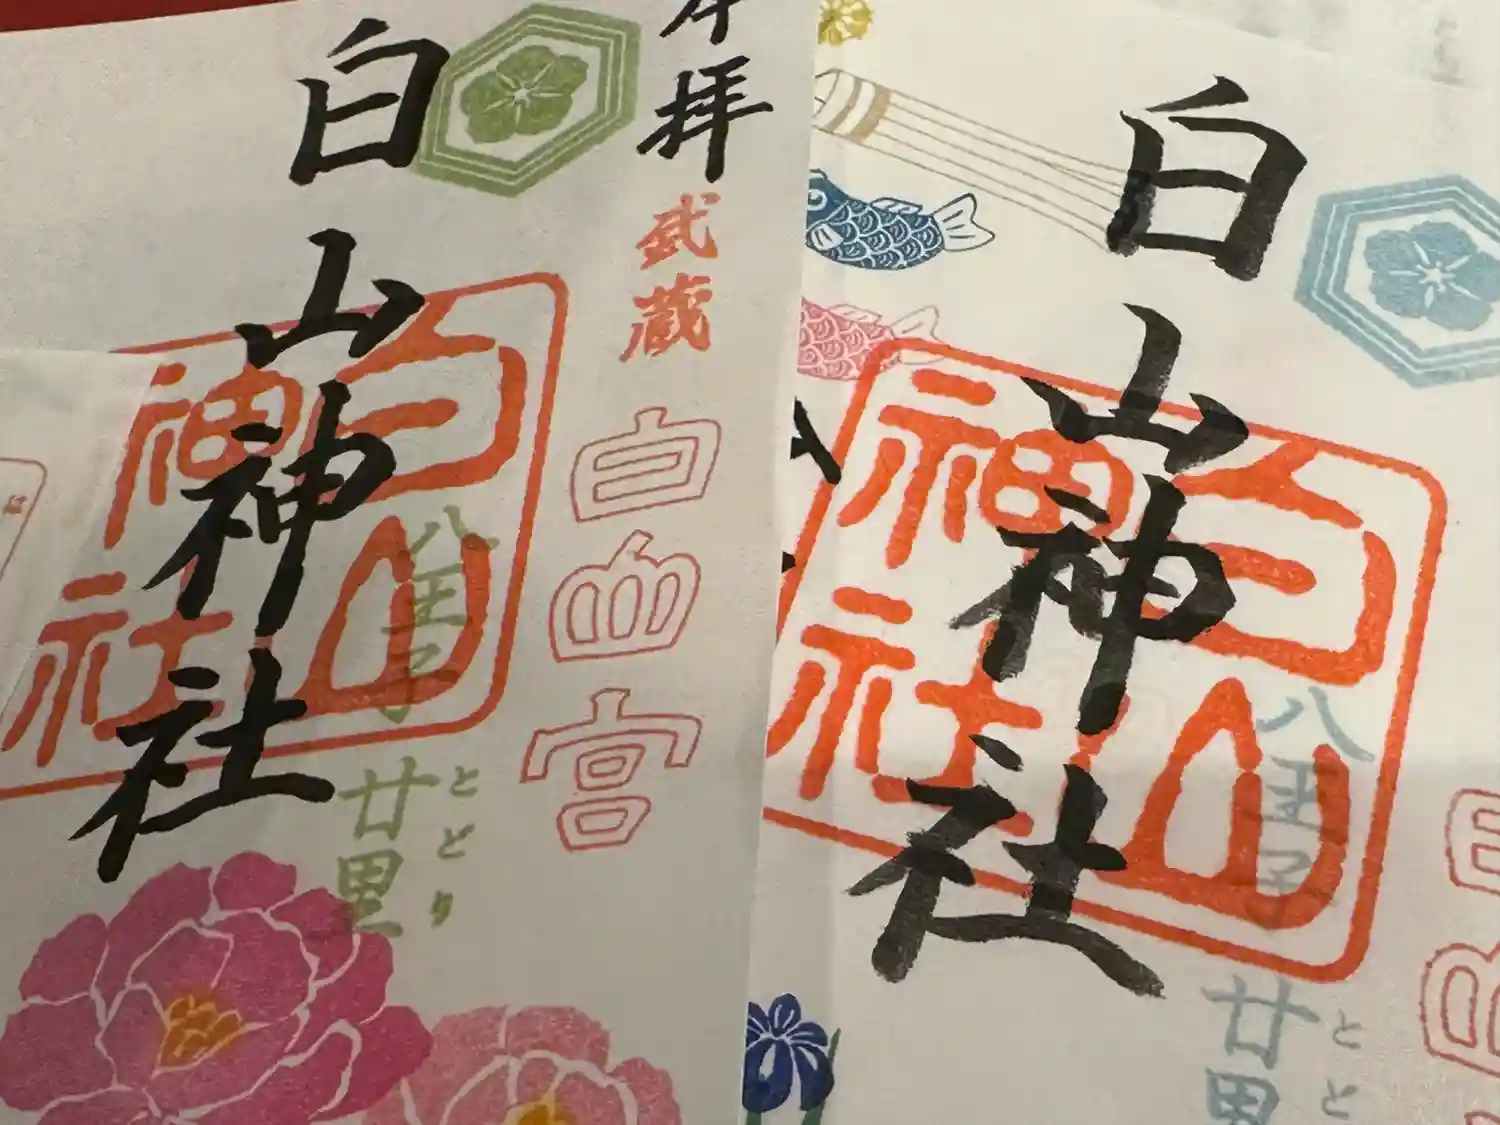 奉拝
武蔵
白山宮
白山神社
白山
神社
八王子
廿里
とどり
は
白山神社
白山
神社
八王子
廿里
とど
白山